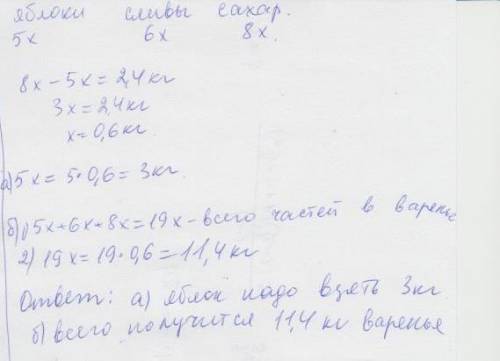 яблоки сливы сахар.
5x 6x 8x.
8x - 5x = 2,4 кг
3x = 2,4 кг
x = 0,6 кг.
а) 5x = 5 · 0,6 = 3 кг.
б) 1) 5x + 6x + 8x = 19x - всего частей в варенье
2) 19x = 19 · 0,6 = 11,4 кг
Ответ: а) яблок надо взять 3 кг
б) всего получится 11,4 кг варенья